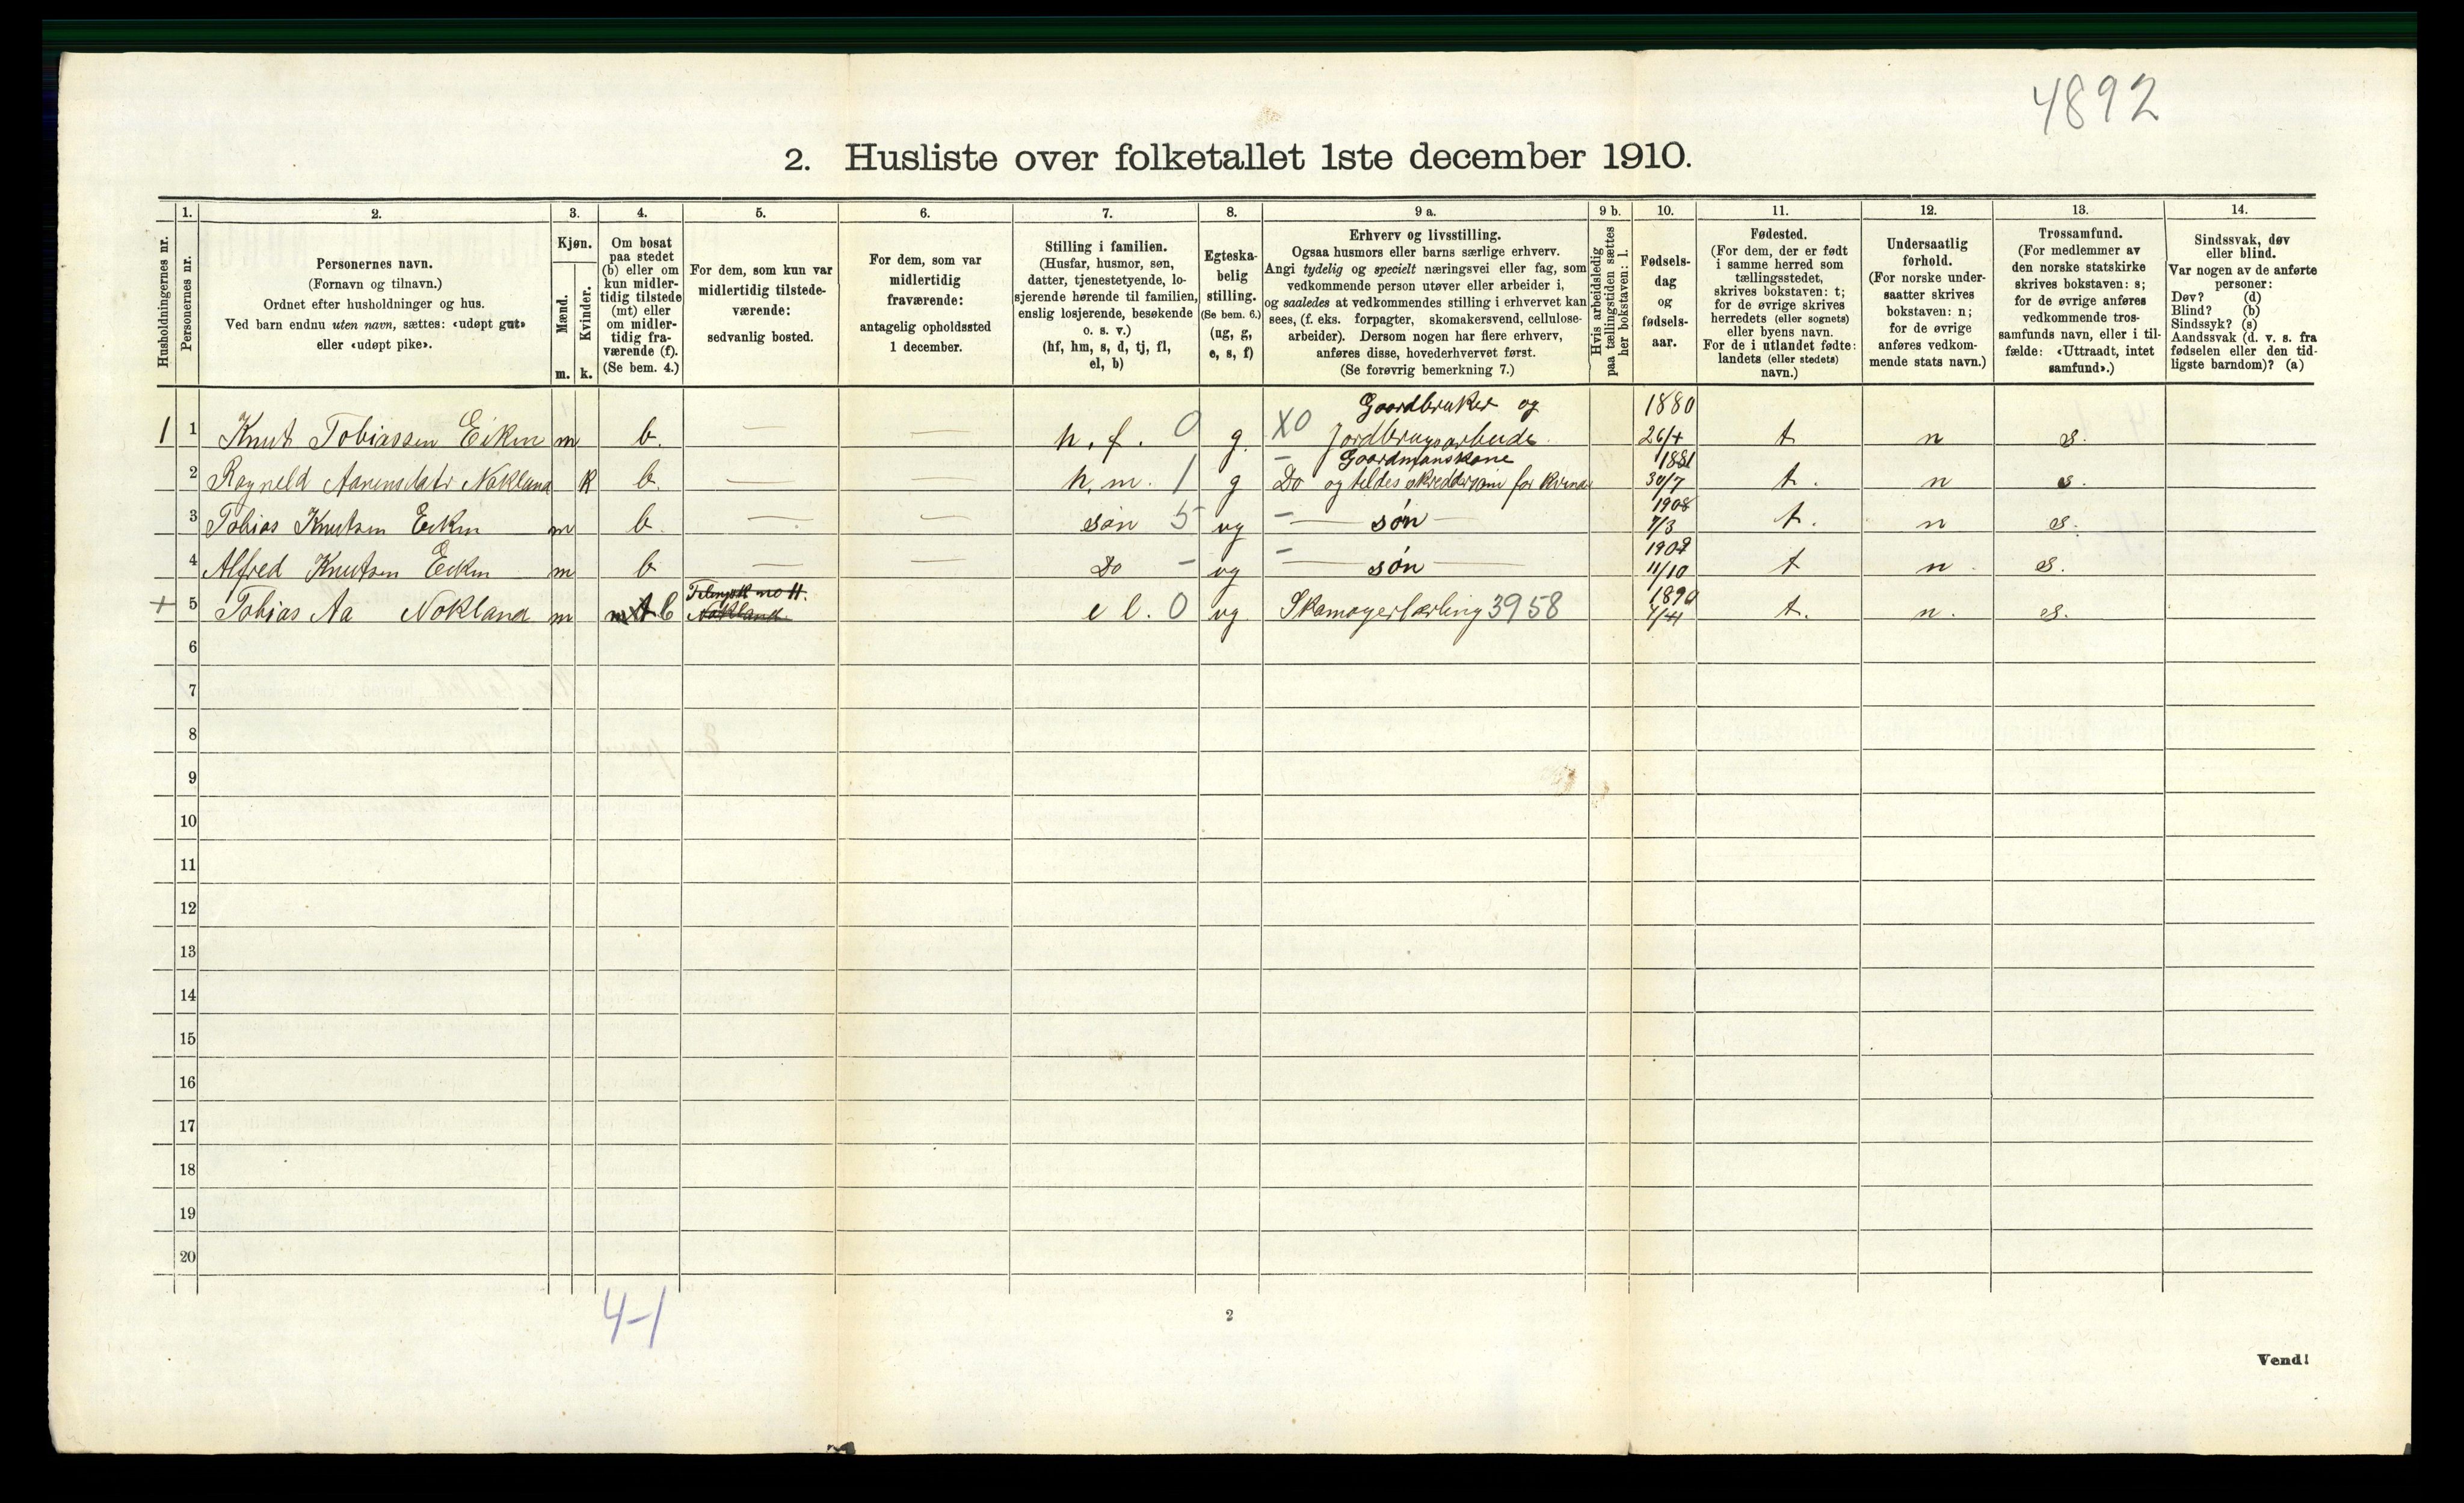 4892
2. Husliste over folketallet 1ste december 1910.
Husholdningernes nr.
1.
Personernes nr.
2.
Personernes navn.
(Fornavn og tilnavn.)
Ordnet efter husholdninger og hus.
Ved barn endnu uten navn, sættes: «udøpt gut»
eller «udøpt pike».
3.
Kjøn.
Mænd.
Kvinder.
m. k.
4.
Om bosat
paa stedet
(b) eller om
kun midler-
tidig tilstede
(mt) eller
om midler-
tidig fra-
værende (f).
(Se bem. 4.)
5.
For dem, som kun var
midlertidig tilstede-
værende:
sedvanlig bosted.
6.
For dem, som var
midlertidig
fraværende:
antagelig opholdssted
1 december.
7.
Stilling i familien.
(Husfar, husmor, søn,
datter, tjenestetyende, lo-
sjerende hørende til familien,
enslig losjerende, besøkende
o. s. v.)
(hf, hm, s, d, tj, fl,
el, b)
8.
Egteska-
belig
stilling.
(Se bem. 6.)
(ug, g,
e, s, f)
9 a.
Erhverv og livsstilling.
Ogsaa husmors eller barns særlige erhverv.
Angi tydelig og specielt næringsvei eller fag, som
vedkommende person utøver eller arbeider i,
og saaledes at vedkommendes stilling i erhvervet kan
sees, (f. eks. forpagter, skomakersvend, cellulose-
arbeider). Dersom nogen har flere erhverv,
anføres disse, hovederhvervet først.
(Se forøvrig bemerkning 7.)
9 b.
Hvis arbeidsledig
paa tællingstiden sættes
her bokstaven: l.
10.
Fødsels-
dag
og
fødsels-
aar.
11.
Fødested.
(For dem, der er født
i samme herred som
tællingsstedet,
skrives bokstaven: t;
for de øvrige skrives
herredets (eller sognets)
eller byens navn.
For de i utlandet fødte:
landets (eller stedets)
navn.)
12.
Undersaatlig
forhold.
(For norske under-
saatter skrives
bokstaven: n;
for de øvrige
anføres vedkom-
mende stats navn.)
13.
Trossamfund.
(For medlemmer av
den norske statskirke
skrives bokstaven: s;
for de øvrige anføres
vedkommende tros-
samfunds navn, eller i til-
fælde: «Uttraadt, intet
samfund».)
14.
Sindssvak, døv
eller blind.
Var nogen av de anførte
personer:
Døv? (d)
Blind? (b)
Sindssyk? (s)
Aandssvak (d. v. s. fra
fødselen eller den tid-
ligste barndom)? (a)
Gaardbruker og 1880
1 1 Knut Tobiassen Eiken m b. — — h. f. 0 g. X0 Jordbrugsarbeide. 26/4 t n s.
Gaardmanskone 1881
2 Ragneld Aanensdatr Nokland k b. — — h. m. 1 g — Do og tildes skreddersøm for kvinder 30/7 t. n s.
1908
3 Tobias Knutsen Eiken m b. — — søn 5 ug — søn — 7/3 t. n s.
4 Alfred Knutsen Eiken m b — — Do — ug — søn — 11/10 t n. s.
1890
5 Tobias Aa Nokland m mt b Nokland e l. 0 ug. Skomagerlærling 3958 t. n. s.
6
7
8
9
10
11
12
13
14
15
16
17
18
19
20
4-1
2
Vend!